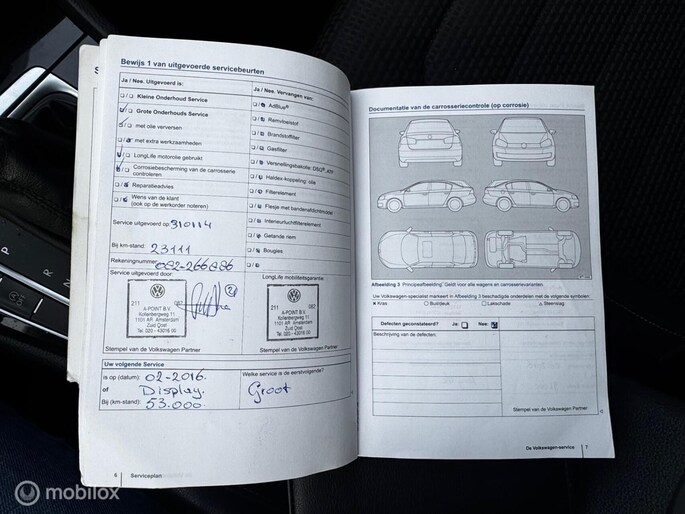 Bewijs 1 van uitgevoerde servicebeurten
Ja / Nee. Uitgevoerd is:
Ja / Nee. Vervangen van:
Kleine Onderhoud Service
Grote Onderhouds Service
met olie verversen
met extra werkzaamheden
LongLife motorolie gebruikt
Corrosiebescherming van de carrosserie
controleren
Reparatieadvies
Wens van de klant
(ook op de werkorder noteren)
AdBlue®
Remvloeistof
Brandstoffilter
Gasfilter
Versnellingsbakolie: DSG®, ATG
Haldex-koppeling: olie
Filterelement
Flesje met bandenafdichtmiddel
Interieurluchtfilterelement
Getande riem
Bougies
Service uitgevoerd op 310114
Bij km-stand: 23111
Rekeningnummer: 082-266886
Service uitgevoerd door:
LongLife mobiliteitsgarantie
211 082
A-POINT B.V.
Kollenbergweg 11
1101 AR Amsterdam
Zuid Oost
Tel. 020 - 43016 00
211 082
A-POINT B.V.
Kollenbergweg 11
1101 AR Amsterdam
Zuid Oost
Tel. 020 - 43016 00
Stempel van de Volkswagen Partner
Stempel van de Volkswagen Partner
Uw volgende Service
is op (datum): 02-2016.
of Display.
Bij (km-stand): 53.000.
Welke service is de eerstvolgende?
Groot
6 Serviceplan
Documentatie van de carrosseriecontrole (op corrosie)
Afbeelding 3 Principeafbeelding: Geldt voor alle wagens en carrosserievarianten.
Uw Volkswagen-specialist markeert in Afbeelding 3 beschadigde onderdelen met de volgende symbolen:
Kras Buil/deuk Lakschade Steenslag
Defecten geconstateerd? Ja: Nee:
Beschrijving van de defecten:
Stempel van de Volkswagen Partner
De Volkswagen-service 7
P
R
N
D
mobilox